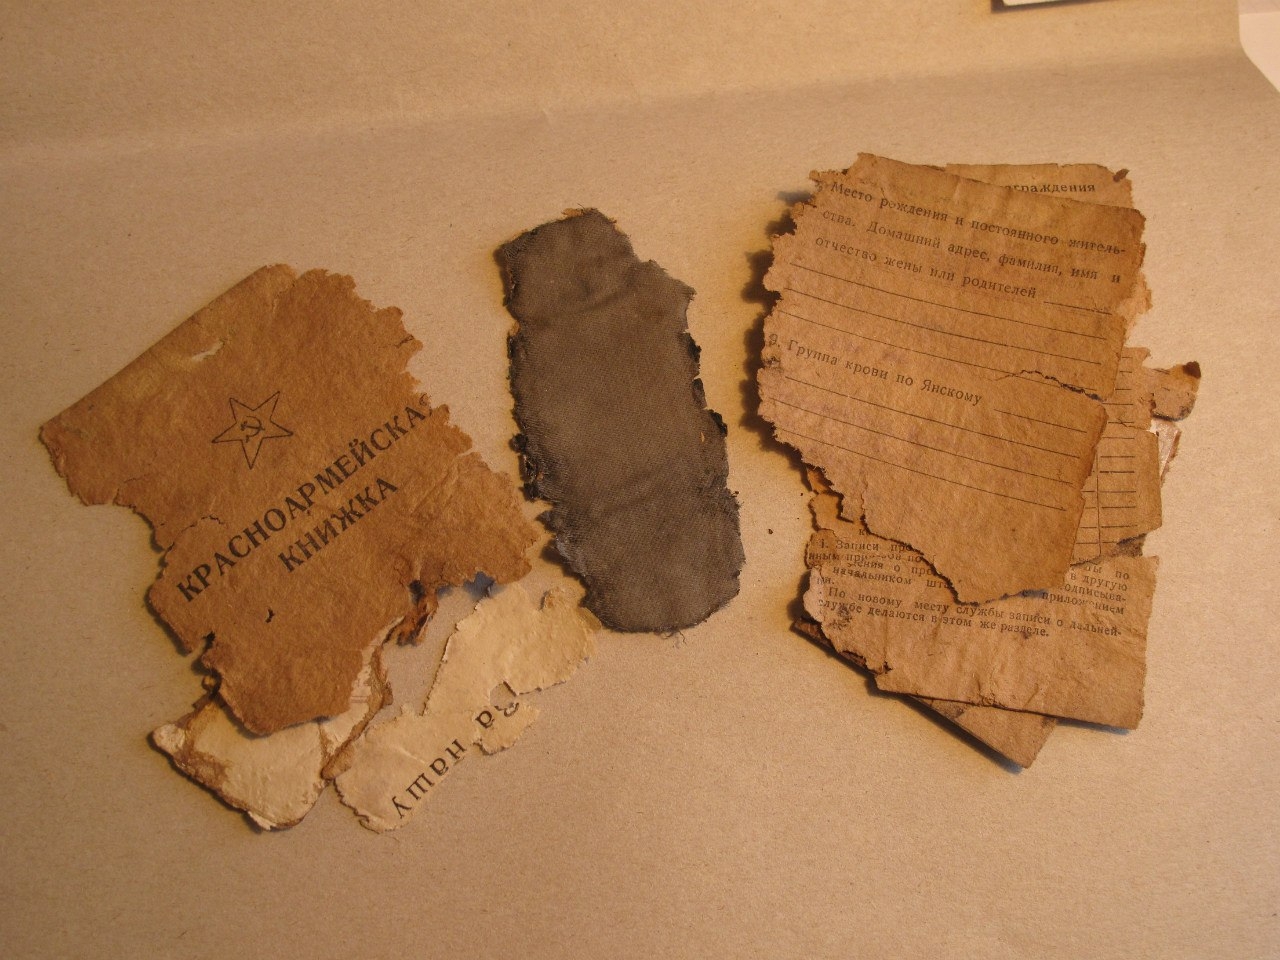 КРАСНОАРМЕЙСКАЯ
КНИЖКА
За нашу
аграждения
Место рождения и постоянного житель-
ства. Домашний адрес, фамилия, имя и
отчество жены или родителей
9. Группа крови по Янскому
1. Записи
в другую
начальником
приложением
По новому месту службы записи о дальней-
службе делаются в этом же разделе.